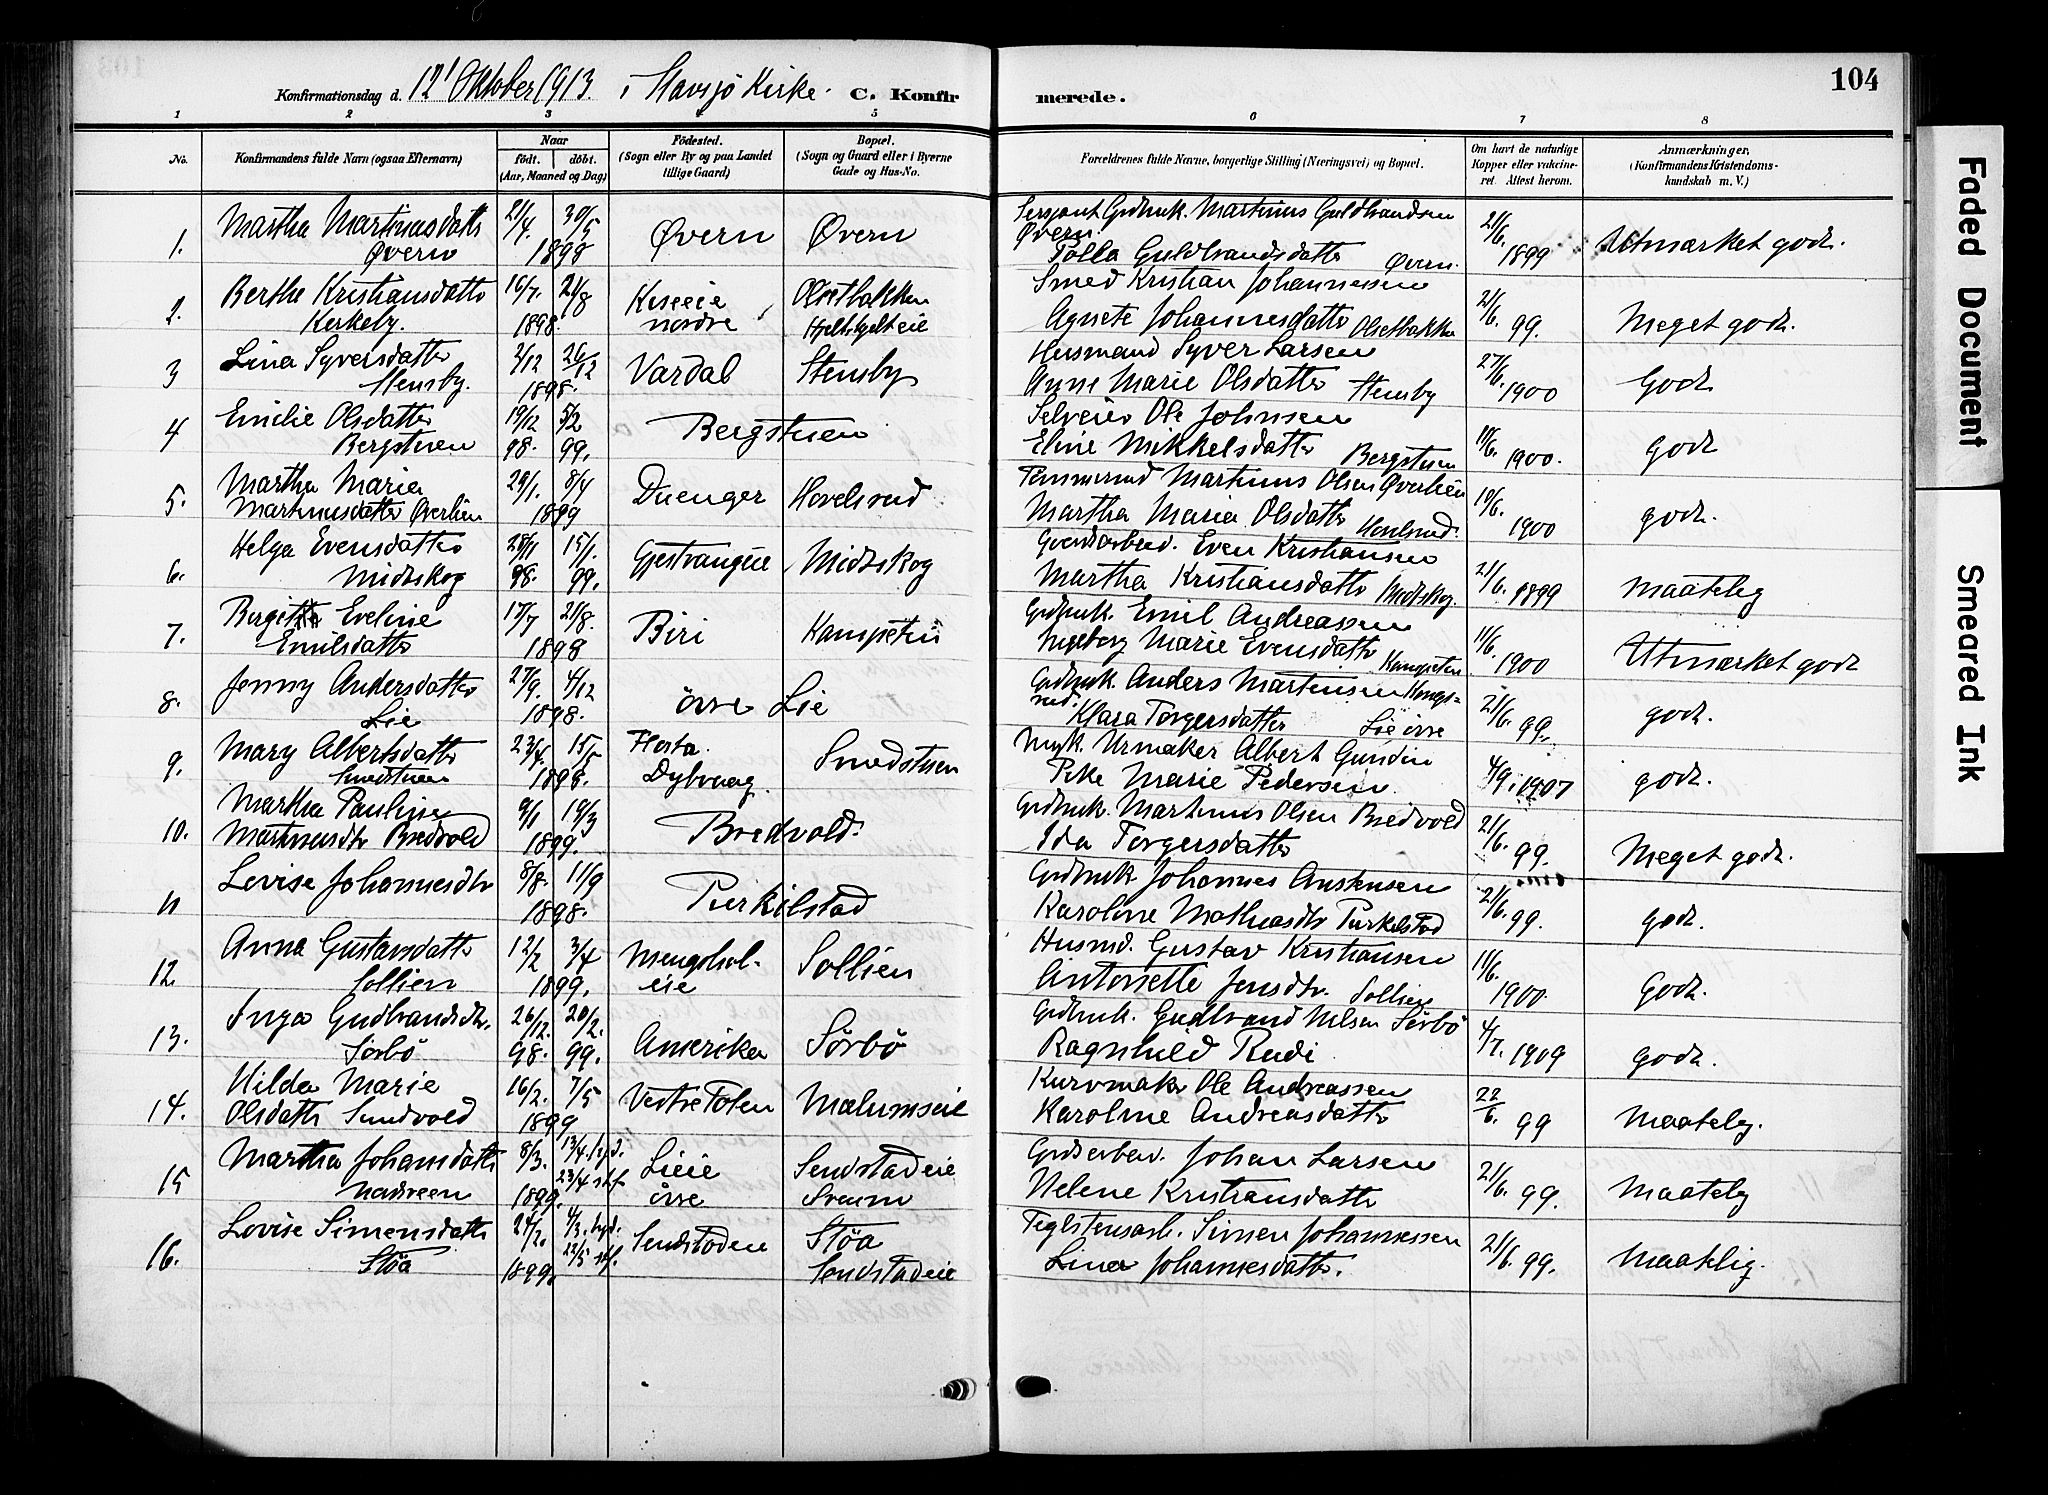 104
Konfirmationsdag d. 12' Oktober 1913. i Stavsjö Kirke. C. Konfirmerede.
1 2 3 4 5 6 7 8
No.
Konfirmandens fulde Navn (ogsaa Efternavn)
Naar
födt. döbt.
(Aar, Maaned og Dag)
Födested.
(Sogn eller By og paa Landet
tillige Gaard)
Bopæl.
(Sogn og Gaard eller i Byerne
Gade og Hus-No.
Forældrenes fulde Navne, borgerlige Stilling (Næringsvei) og Bopæl.
Om havt de naturlige
Kopper eller vakcine-
ret. Attest herom.
Anmærkninger,
(Konfirmandens Kristendoms-
kundskab m. V.)
1. Martha Martinusdatter Øvern 21/4. 30/5 1898 Øvern Øvern
Sersjant Grdbruk. Martinus Guldbrandsen Øvern
Polla Guldbrandsdatter Øvern. 21/6. 1899 Utmærket godt.
2. Berthe Kristiansdatter Kerkeby. 16/7. 21/8 1898. Kiseeie nordre Olsetbakken
Smed Kristian Johannessen
Agnete Johannesdatter Olsetbakken 21/6. 99. Meget godt.
3 Lina Syversdatter Stensby. 2/12 26/12 1898. Vardal Stensby
Husmand Syver Larsen
Anne Marie Olsdatter Stensby 27/6. 1900 Godt
4 Emilie Olsdatter Bergstuen 19/12 98. 5/2 99. Bergstuen
Selveier Ole Johnsen
Eline Mikkelsdatter Bergstuen 11/6. 1900. godt
5. Martha Maria Martinusdatter Øverlien 29/1. 8/4 1899 Duenger Hovelsrud
Tømmermd Martinus Olsen Øverlien
Martha Maria Olsdatter Hovelsrud. 10/6. 1900 godt.
6. Helga Evensdatter Midtskog 28/11 98. 15/1. 99. Gjestvangeie Midtskog
Gaardarbeid. Even Kristiansen
Martha Kristiansdatter Midtskog. 21/6. 1899 Maatelig
7. Birgitte Eveline Emilsdatter 17/7 21/8. 1898 Biri Kampetin
Grdbruk. Emil Andreassen
Ingeborg Marie Evensdatter Kampeten 11/6. 1900 Utmærket godt
8. Jenny Andersdatter Lie 27/9. 4/12 1898. övre Lie
Grdbruk. Anders Martinsen Kongsrud.
Klara Torgersdatter Lie övre 21/6. 99. godt.
9. Mary Albertsdatter Smedstuen 23/4. 15/5 1898. Flosta. Dybvaag. Smedstuen
Urmaker Albert Gundin
Pike Marie Pedersen. 4/9. 1907 godt.
10. Martha Pauline Martinusdtr Bredvold 9/1 19/3 1899. Bredvold.
Grdbruk. Martinus Olsen Bredvold
Ida Torgersdatter 21/6. 99. Meget godt.
11 Lovise Johannesdtr 8/8. 11/9 1898. Purkilstad
Grdbruk Johannes Austensen
Karoline Mathiasdtr Purkelstad 21/6. 99. godt.
12. Anna Gustavsdatter Sollien 12/2 3/4 1899. Mengshol-eie Sollien
Husmd. Gustav Kristiansen
Antonette Jensdtr. Sollien 11/6. 1900. Godt.
13. Inga Gudbrandsdtr. Sörbö 26/12. 98. 20/2. 99. Amerika Sörbö
Grdbruk. Gudbrand Nilsen Sörbö
Ragnhild Rudi 4/7. 1909 godt.
14. Hilda Marie Olsdatter Sundvold 16/2. 7/5 1899 Vestre Toten Mælumseie
Kurvmaker Ole Andreassen
Karoline Andreasdatter 22/6. 99 Maatelig.
15 Martha Johansdatter Nadreen 8/3. 1899. 13/4. hjd. 23/4 stf. Lieie övre Sendstadeie Sveum
Grdsarbeid. Johan Larsen
Helene Kristiansdatter 21/6. 99. Maatelig
16. Lovise Simensdatter Stöa 24/2. 1899. 4/3. hjd. 22/5 stf. Sendstadeie Stöa Sendstadeie
Teglstensarb. Simen Johannessen
Lina Johannesdatter. 21/6. 99. Maatelig.
Faded Document
Smeared Ink